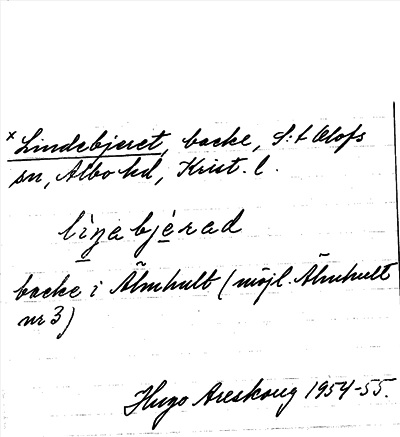 × Lindebjeret, backe, S:t Olofs
sn, Albo hd, Krist. l.
lìṉabjé̱rad
backe i Älmhult (möjl. Älmhult
nr 3)
Hugo Areskoug 1954-55.